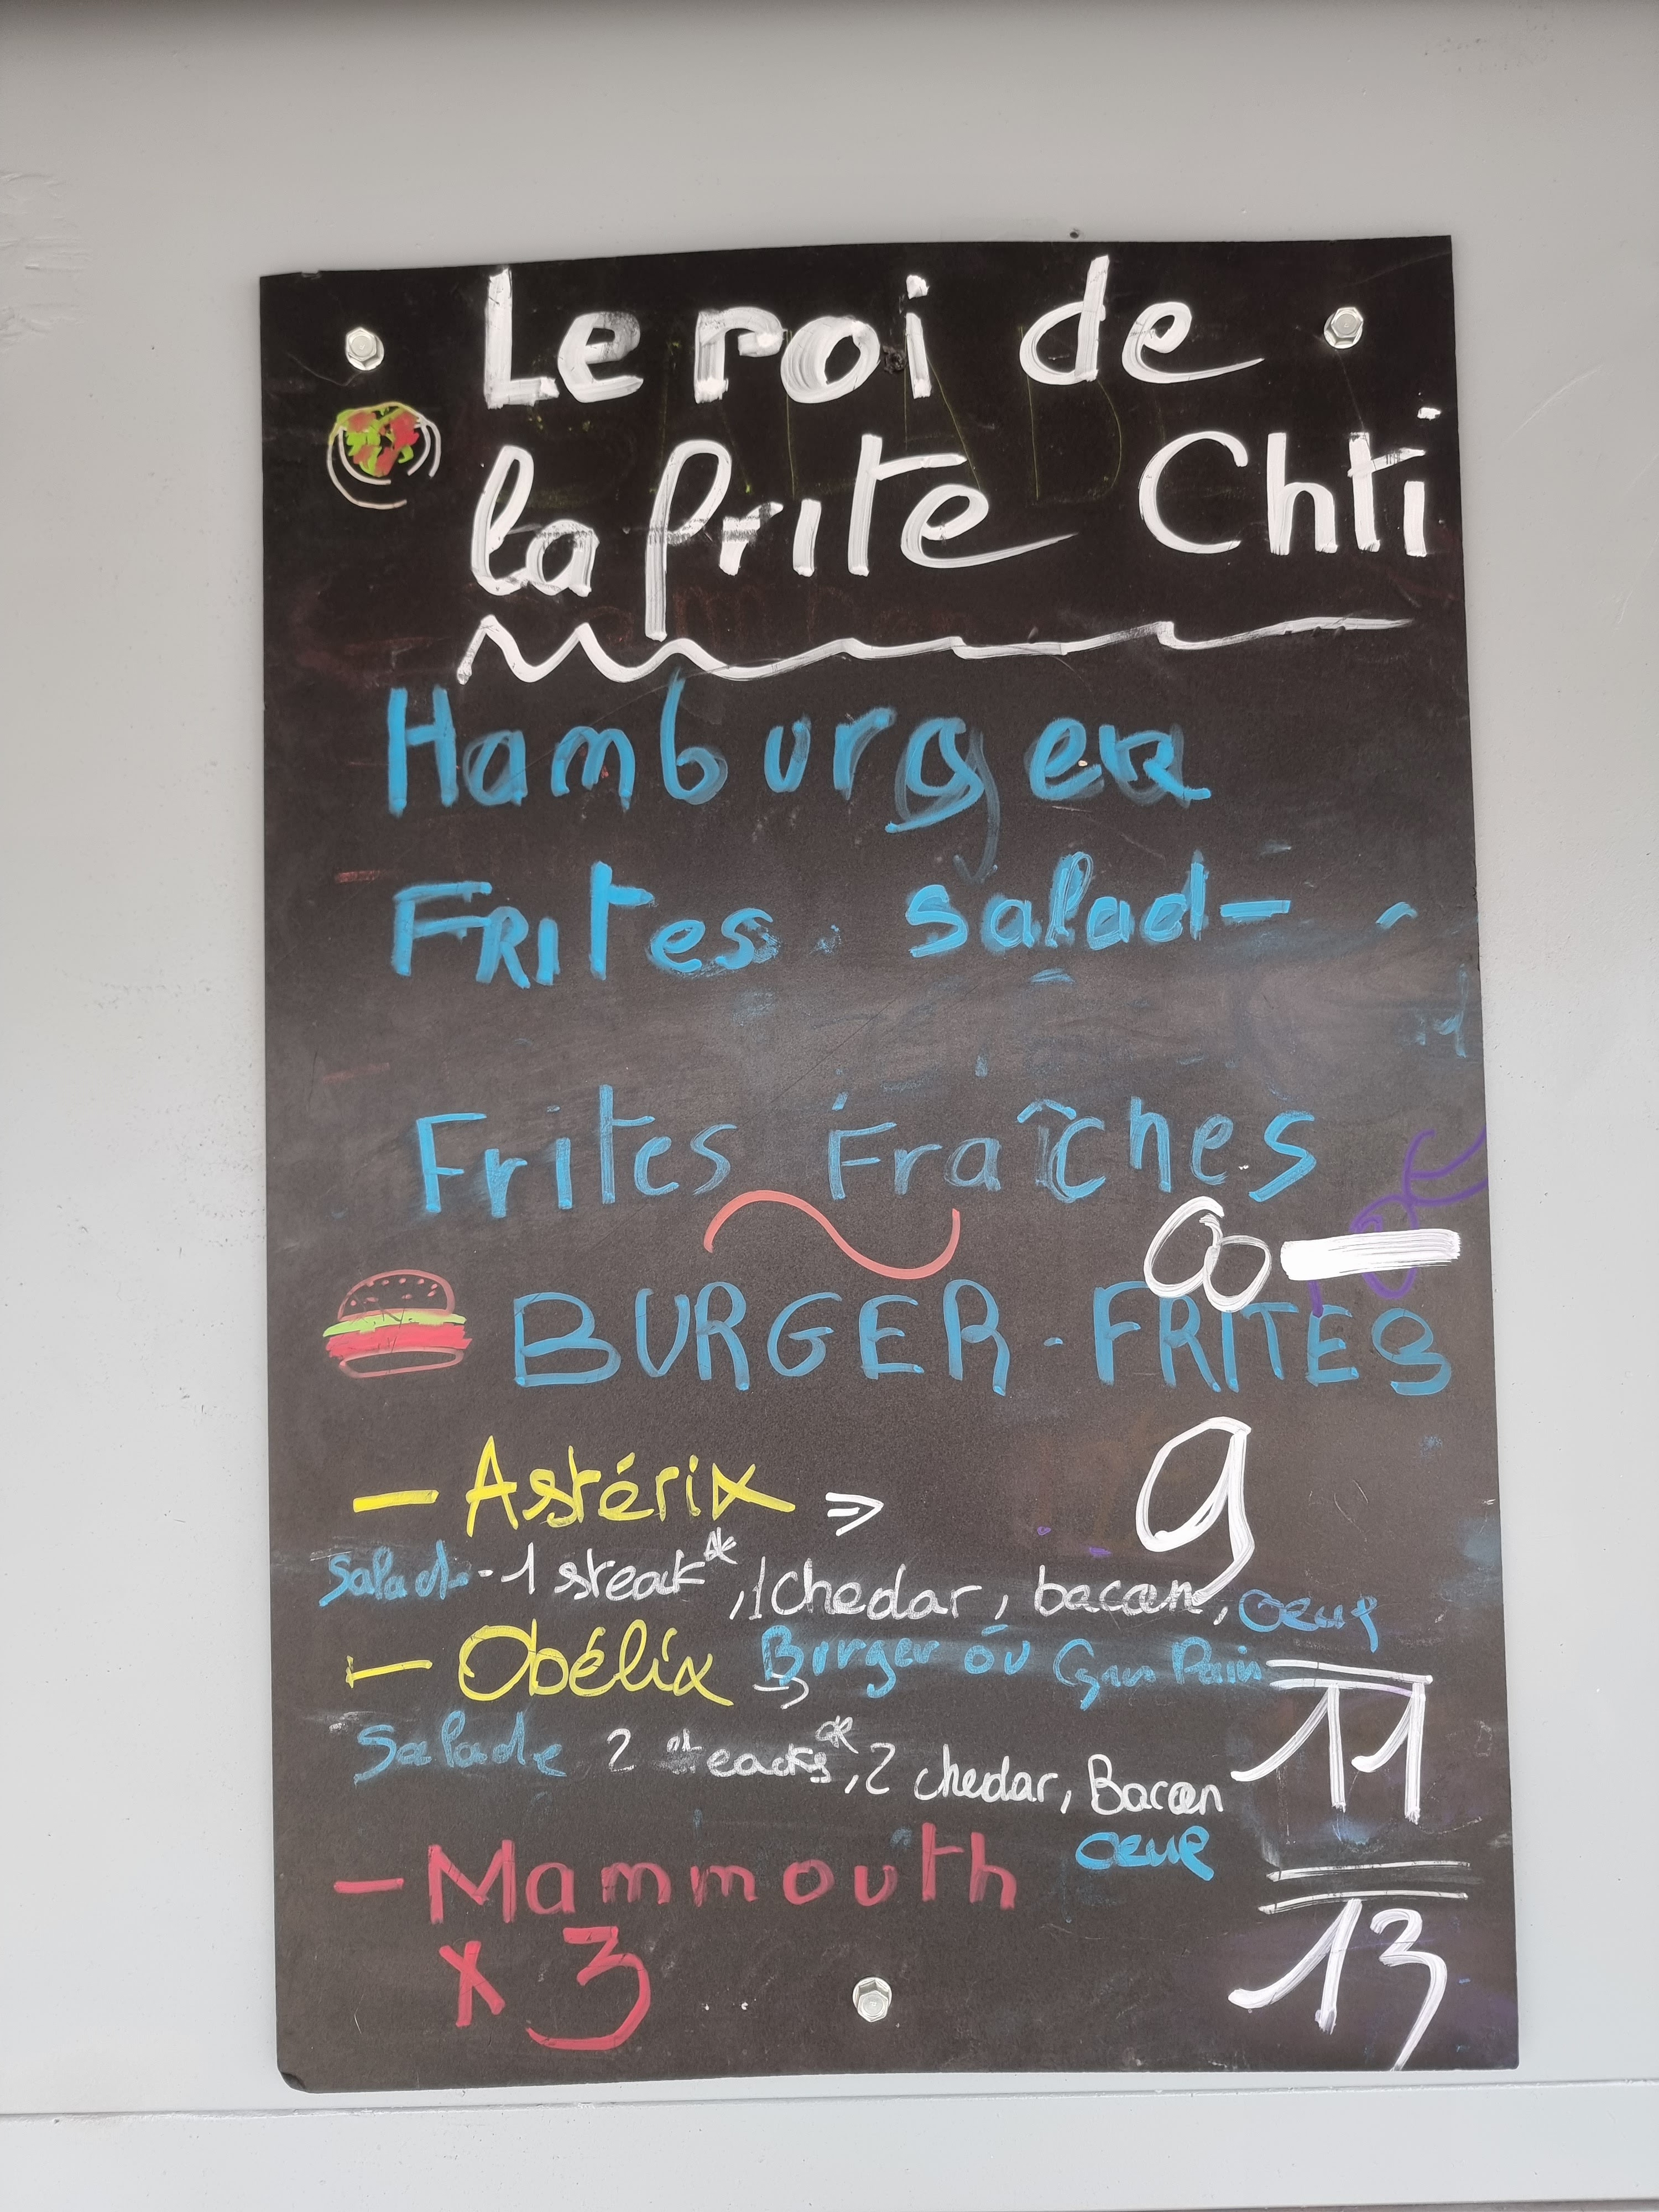 Le roi de
la frite Chti
Hamburger
FRites. Salad-
Frites Fraîches
8
BURGER-FRITES
- Astérix => 9
Salad--1 steak*, 1 chedar, bacon, oeuf
- Obélix Burger ou Gran Pain
11
Salade 2 steacks*, 2 chedar, Bacon
oeuf
- Mammouth
x 3
13